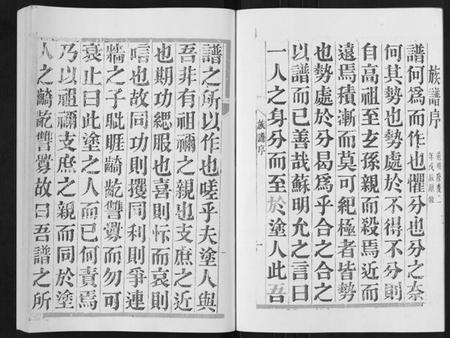 族譜序
譜何爲而作也懼分也分之奈
何其勢也勢處於不得不分則
自高祖至玄孫親而殺焉近而
遠焉積漸而莫可紀極者皆勢
也勢處於分易爲乎合之合之
以譜而已善哉蘇明允之言曰
一人之身分而至於塗人此吾
族譜序
譜之所以作也嗟乎夫塗人與
吾非有祖禰之親也支庶之近
也期功緦服也喜則忻而哀則
唁也故同功則擭同利則爭連
牆之子眦睚齮齕讐釁而勿可
衰止曰此塗之人而已何責焉
乃以祖禰支庶之親而同於塗
人之齮齕讐釁故曰吾譜之所